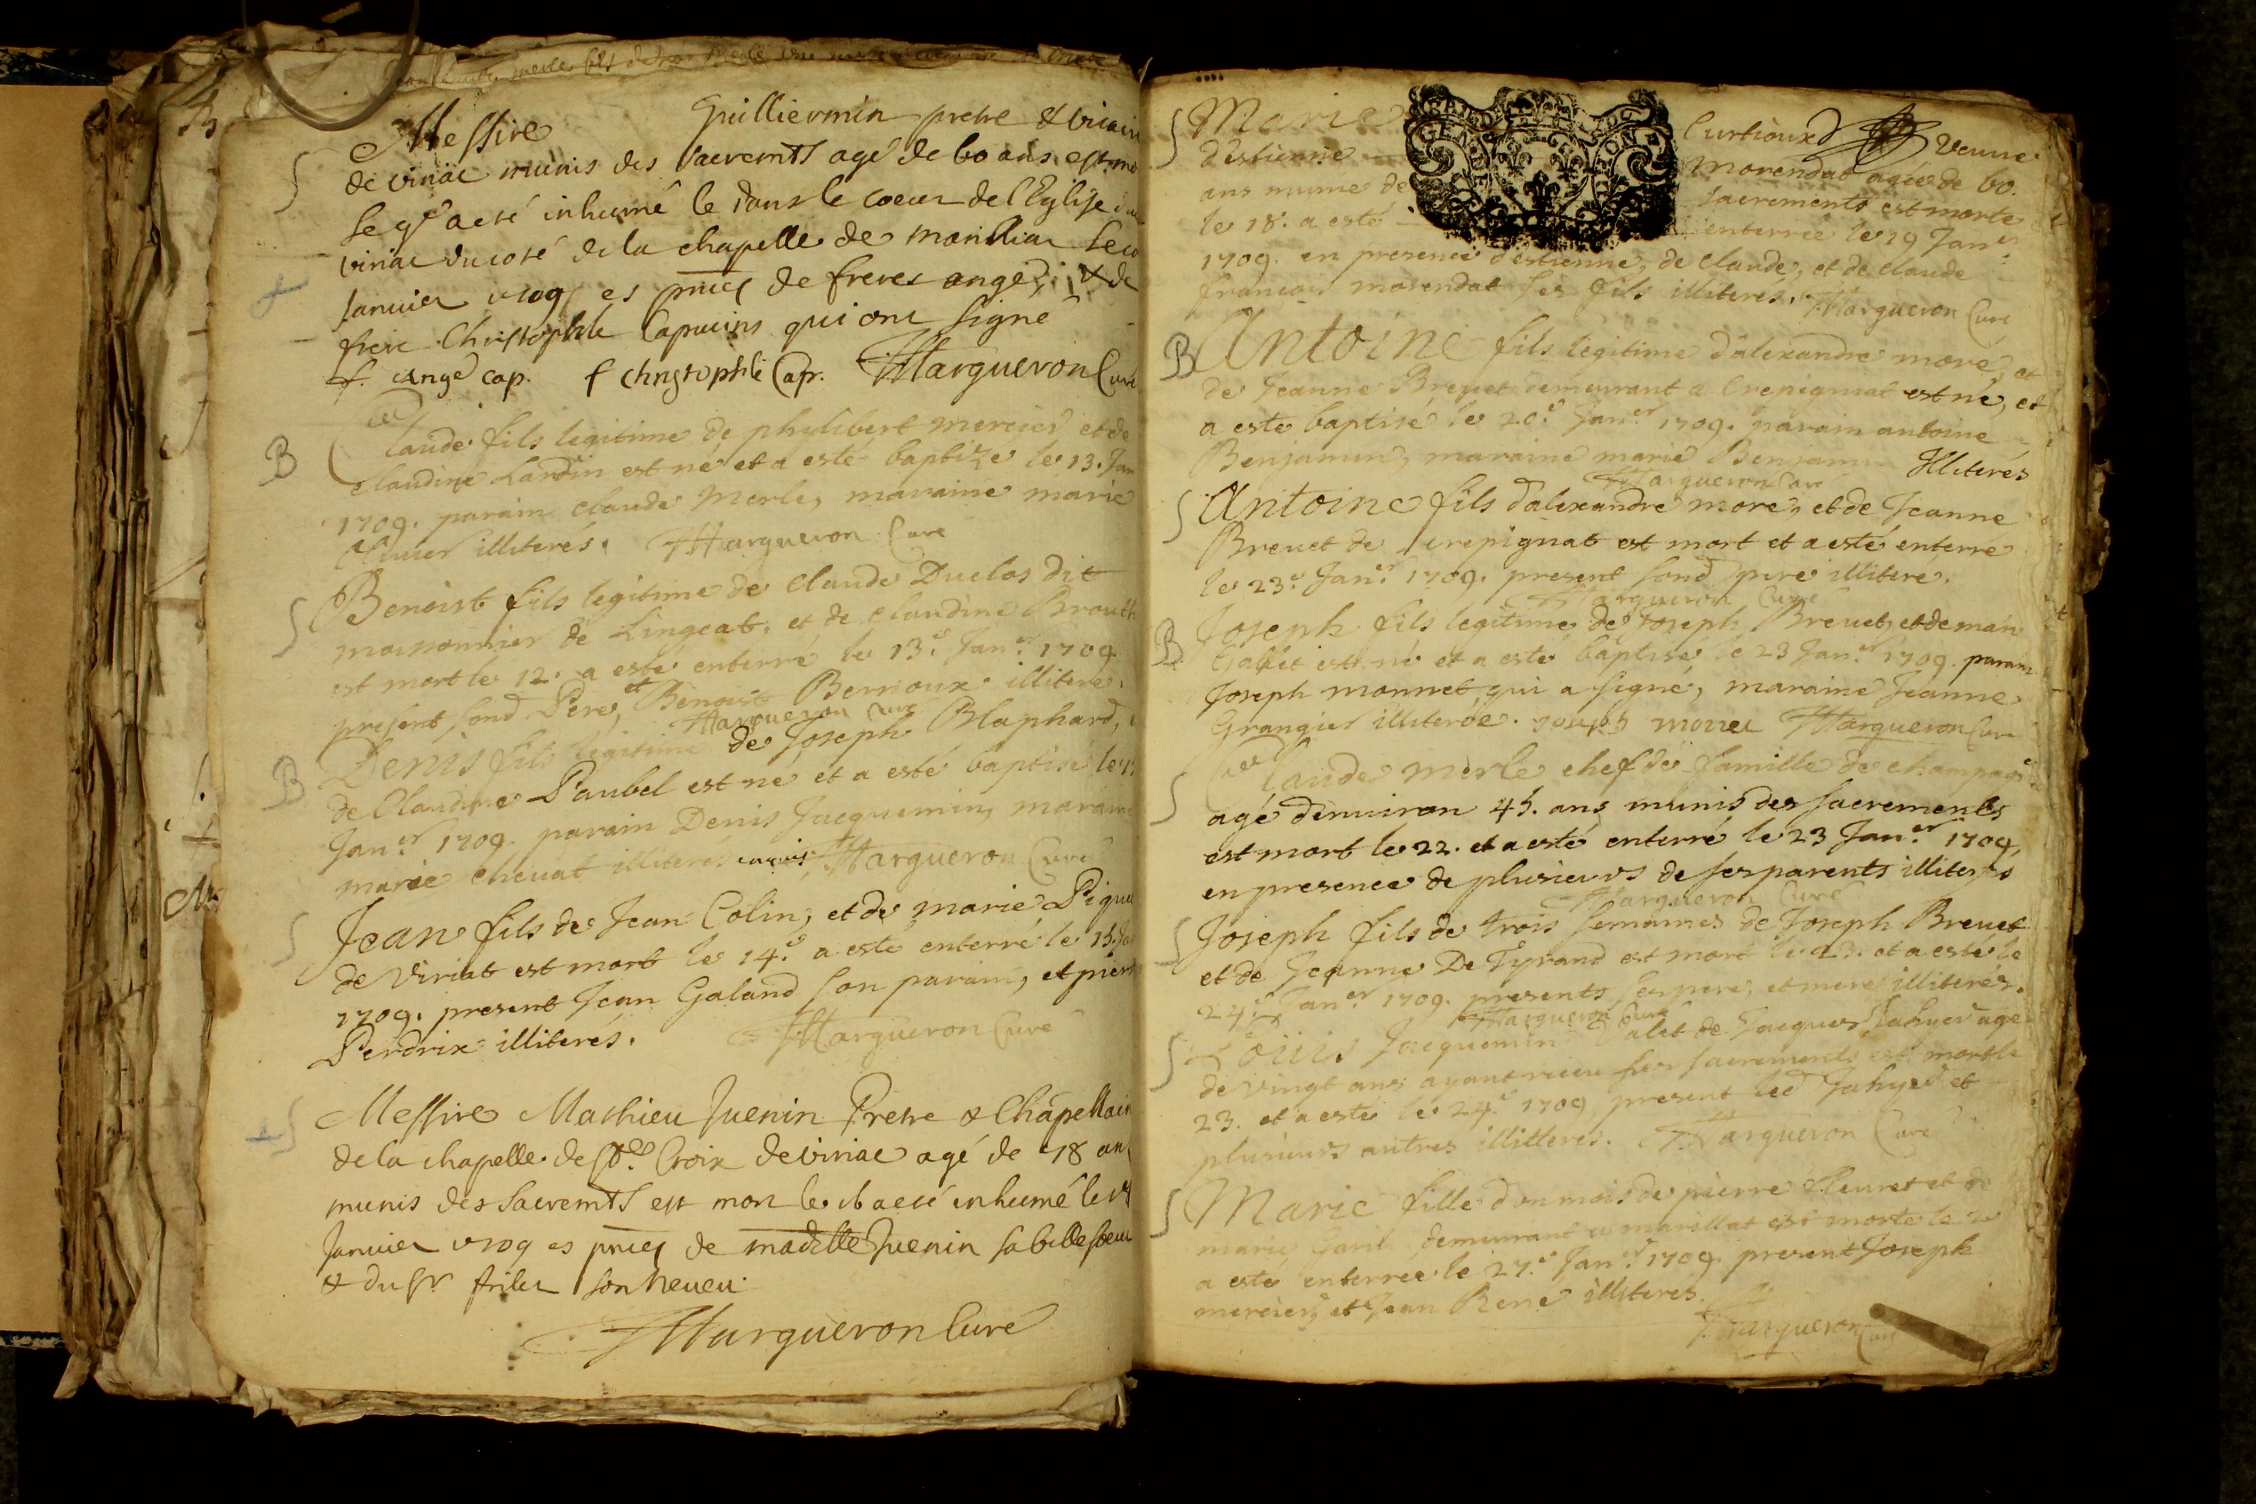 Messire Guilliermin pretre & vicaire
de viriac munis des sacremts agé de 60 ans est mo
le 9e a eté inhumé le dans le coeur de l'Eglise de
viriac du coté de la chapelle de
Janvier 1709 es pnces de freres ange, & de
frere Christophle Capucins qui ont signé
f. ange cap. f christophle Cap. Margueron Curé
B
Claude fils legitime de philibert mercier et de
claudine Lardin est né et a esté baptize le 13. Jan
1709. parain claude Merle, maraine marie
illiterés. Margueron Curé
S
Benoist fils legitime de claude Duclos dit
moissonnier de Lingeat, et de claudine
est mort le 12. a esté enterré le 13.e Jan.er 1709
present sond Pere, et Benoist Bernoux illiteré.
Margueron curé
B
Denis fils legitime de Joseph Blaphard,
de Claudine Paubel est né et a esté baptisé le
Jan.er 1709. parain Denis Jacquemin, maraine
marie chevat illiterés Margueron Curé
S
Jean fils de Jean Colin, et de marie Pique
de Viriat est mort le 14.e a esté enterré le 15. Jan
1709. present Jean Galand son parain, et pierre
Perdrix illiterés. Margueron Curé
S
Messire Mathieu Juenin Pretre & Chapellain
de la chapelle de Ste Croix de viriac agé de 78 ans
munis des Sacremts est mort le 16 a eté inhumé le 17
Janvier 1709 es pnces de madelle Juenin sa belle soeur
& du Sr son neveu
Margueron Curé
S
Marie Curtioux veuve
d'estienne Morendat agée de 60.
ans munie de sacrements est morte
le 18. a esté enterrée le 19 Jan.er
1709. en presence d'estienne, de claude, et de claude
francois morendat ses fils illiterés. Margueron Curé
B
Antoine fils legitime d'alexandre moré, et
de Jeanne Brevet demeurant a Crepignat est né, et
a esté baptisé le 20.e Jan.er 1709. parain antoine
Benjamin, maraine marie Benjamin Illiterés
Margueron Curé
S
Antoine fils d'alexandre moré, et de Jeanne
Brevet de Crepignat est mort et a esté enterré
le 23.e Jan.er 1709. present sond pere illiteré.
Margueron Curé
B
Joseph fils legitime de Joseph Brevet, et de marie
Gabet est né et a esté baptisé le 23 Jan.er 1709. parain
Joseph monnet qui a signé, maraine Jeanne
Grangier illiterée. Margueron Curé
S
Claude Merle chef de famille de
agé d'environ 45. ans munis des sacrements
est mort le 22. et a esté enterré le 23 Jan.er 1709,
en presence de plusieurs de ses parents illiterés
Margueron Curé
S
Joseph fils de trois semaines de Joseph Brevet
et de Jeanne De Tyrand est mort le 23. et a esté le
24.e Jan.er 1709. presents ses pere, et mere illiterés.
Margueron Curé
S
Louis Jacquemin Valet de Jacques Jahyer agé
de vingt ans ayant receu ses sacrements est mort le
23. et a esté le 24.e 1709, present led Jahyer et
plusieurs autres illiterés. Margueron Curé
S
Marie fille d'un mois de pierre fleuret et de
marie demeurant a marillat est morte le
a esté enterrée le 27.e Jan.er 1709. present Joseph
mercier, et Jean René illiterés.
Margueron Curé